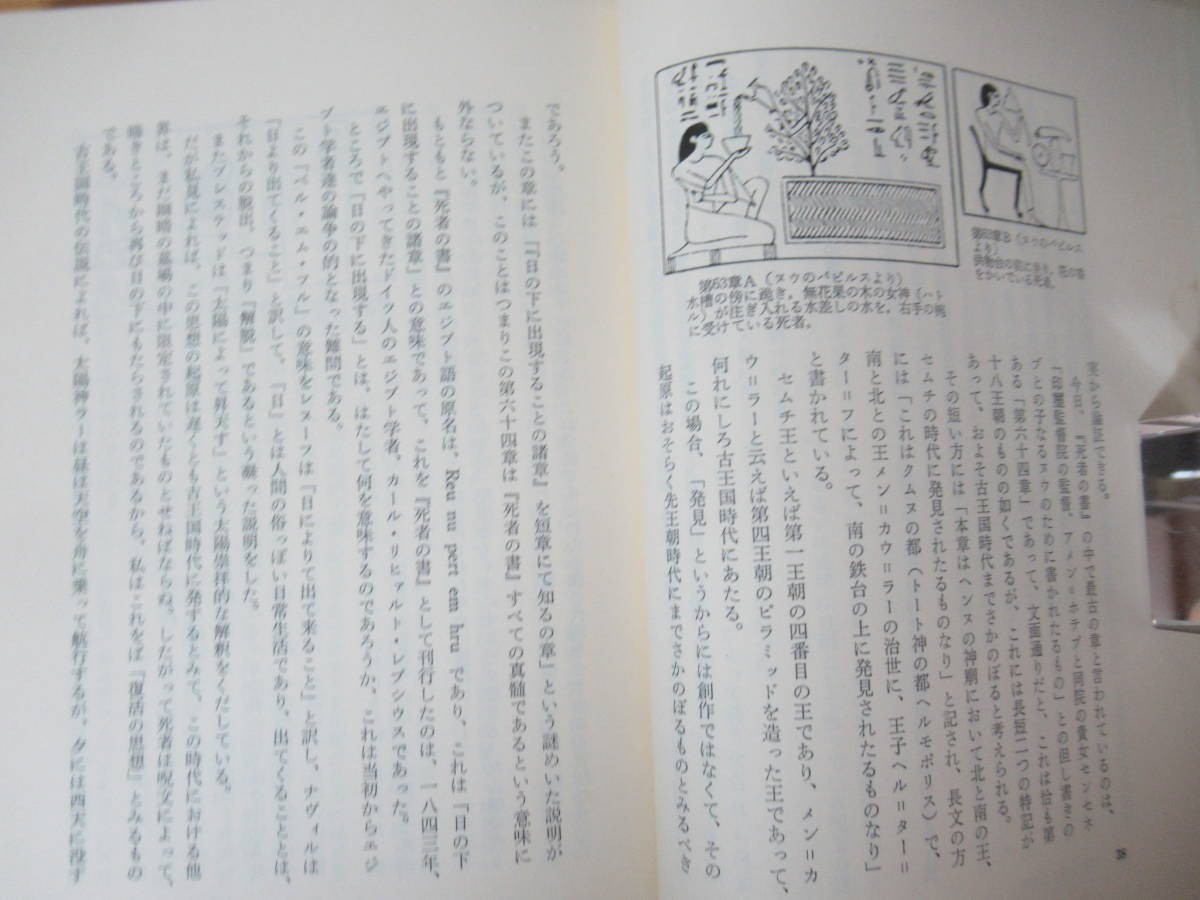 第63章B（ヌウのパピルス
より）
供物台の前に坐り、花の香
をかいでいる死者。
第63章A（ヌウのパピルスより）
水槽の傍に跪き、無花果の木の女神（ハト
ル）が注ぎ入れる水差しの水を、右手の椀
に受けている死者。
実から論証できる。
今日、『死者の書』の中で最古の章と言われているのは、
「印璽監督院の監督、アメン＝ホテプと同院の貴女センセネ
ブとの子なるヌウのために書かれたるもの」との但し書きの
ある「第六十四章」であって、文面通りだと、これは恰も第
十八王朝のものの如くであるが、これには長短二つの特記が
あって、およそ古王国時代までさかのぼると考えられる。
その短い方には「本章はヘンヌの神廟において北と南の王、
セムチの時代に発見されたるものなり」と記され、長文の方
には「これはクムヌの都（トート神の都ヘルモポリス）で、
南と北との王メン＝カウ＝ラーの治世に、王子ヘル＝ター＝
ター＝フによって、南の鉄台の上に発見されたるものなり」
と書かれている。
セムチ王といえば第一王朝の四番目の王であり、メン＝カ
ウ＝ラーと云えば第四王朝のピラミッドを造った王であって、
何れにしろ古王国時代にあたる。
この場合、「発見」というからには創作ではなくて、その
起原はおそらく先王朝時代にまでさかのぼるものとみるべき
38
であろう。
またこの章には『日の下に出現することの諸章』を短章にて知るの章」という謎めいた説明が
ついているが、このことはつまりこの第六十四章は『死者の書』すべての真髄であるという意味に
外ならない。
もともと『死者の書』のエジプト語の原名は、Reu nu pert em hru であり、これは「日の下
に出現することの諸章」との意味であって、これを『死者の書』として刊行したのは、一八四三年、
エジプトへやってきたドイツ人のエジプト学者、カール・リヒァルト・レプシウスであった。
ところで「日の下に出現する」とは、はたして何を意味するのであろうか、これは当初からエジ
プト学者達の論争の的となった難問である。
この「ペル・エム・フル」の意味をレヌーフは「日によりて出で来ること」と訳し、ナヴィルは
「日より出てくること」と訳して、「日」とは人間の俗っぽい日常生活であり、出てくることとは、
それからの脱出、つまり「解脱」であるという穿った説明をした。
またブレステッドは「太陽によって昇天す」という太陽崇拝的な解釈をくだしている。
だが私見によれば、この思想の起原は遅くとも古王国時代に発するとみて、この時代における他
界は、まだ暗の墓場の中に限定されていたものとせねばならぬ。したがって死者は呪文によって、
暗きところから再び日の下にもたらされるのであるから、私はこれをば「復活の思想」とみるもの
である。
古王国時代の伝説によれば、太陽神ラーは昼は天空を舟に乗って航行するが、夕には西天に没す